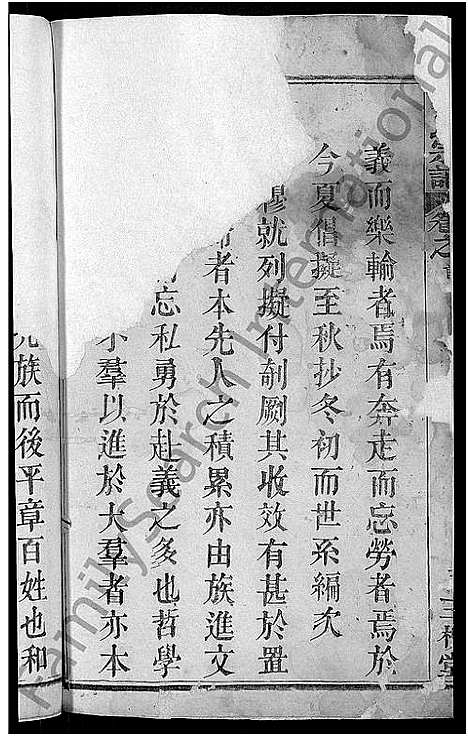 宗譜 卷之
義而樂輸者焉有奔走而忘勞者焉於
今夏倡擬至秋抄冬初而世系編次
穆就列擬付剞劂其收效有甚於置
者本先人之積累亦由族進文
忘私勇於赴義之多也哲學
小羣以進於大羣者亦本
族而後平章百姓也和
FamilySearch International